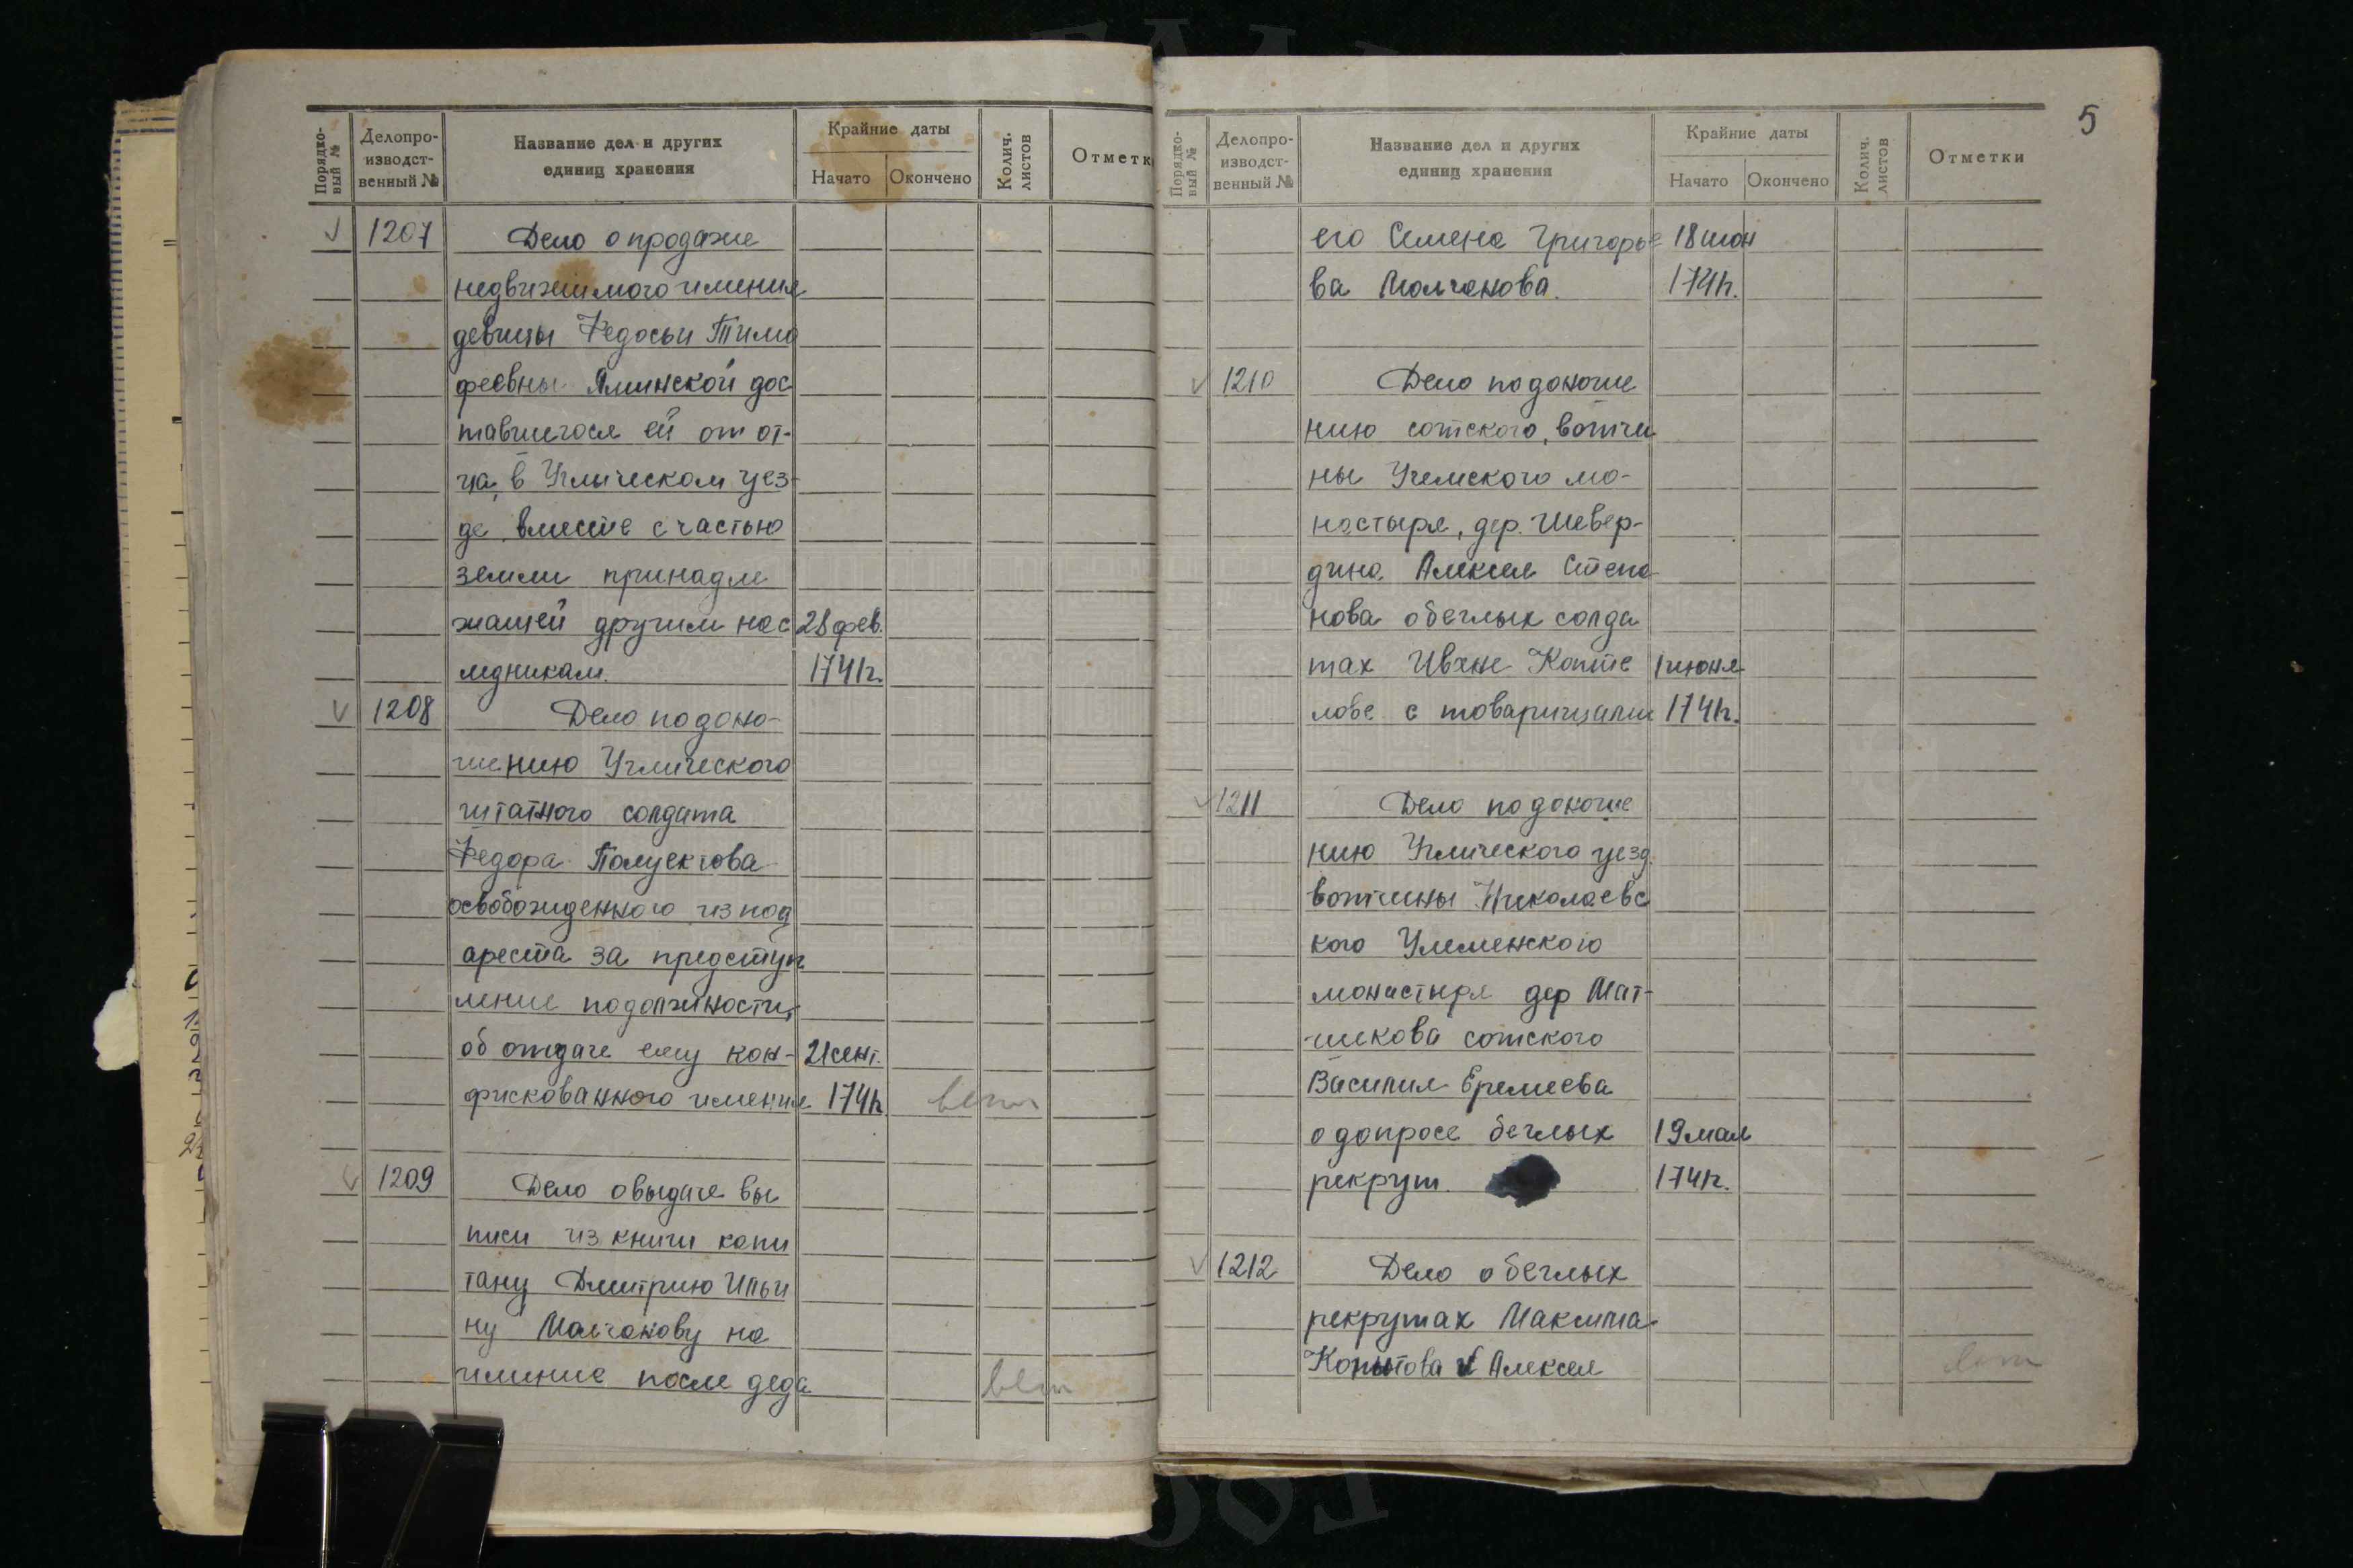 Порядко-
вый №
Делопро-
изводст-
венный №
Название дел и других
единиц хранения
Крайние даты
Начато
Окончено
Колич.
листов
Отметк
1207
Дело о продаже
недвижимого имения
девицы Федосьи Тимо
феевны Ялинской дос
тавшегося ей от от-
ца, в Угличском уез-
де, вместе с частью
земли принадле
жащей другим нас 28 фев.
ледникам. 1741г.
1208
Дело по доно-
шению Углического
штатного солдата
Федора Полуектова
освобожденного из под
ареста за предступ
ление по должности,
об отдаче ему кон- 21 сент.
фискованного имения 1741г
вет
1209
Дело о выдаче вы
писи из книги капи
тану Дмитрию Ильи
ну Молчанову на
имение после деда
вет
5
Порядко-
вый №
Делопро-
изводст-
венный №
Название дел и других
единиц хранения
Крайние даты
Начато
Окончено
Колич.
листов
Отметки
его Семена Григорье 18 июн
ва Молчанова. 1741г.
1210
Дело по доноше
нию сотского, вотчи
ны Учемского мо-
настыря, дер. Шевер-
дина Алексея Степа
нова о беглых солда
тах Ивхне Копте 1 июня
лове с товарищами 1741г.
1211
Дело по доноше
нию Углического уезд.
вотчины Николаевс
кого Улеменского
монастыря дер Мат-
шкова сотского
Василия Еремеева
о допросе беглых 19 мая
рекрут. 1741г.
1212
Дело о беглых
рекрутах Максима
Копытова и Алексея
вет